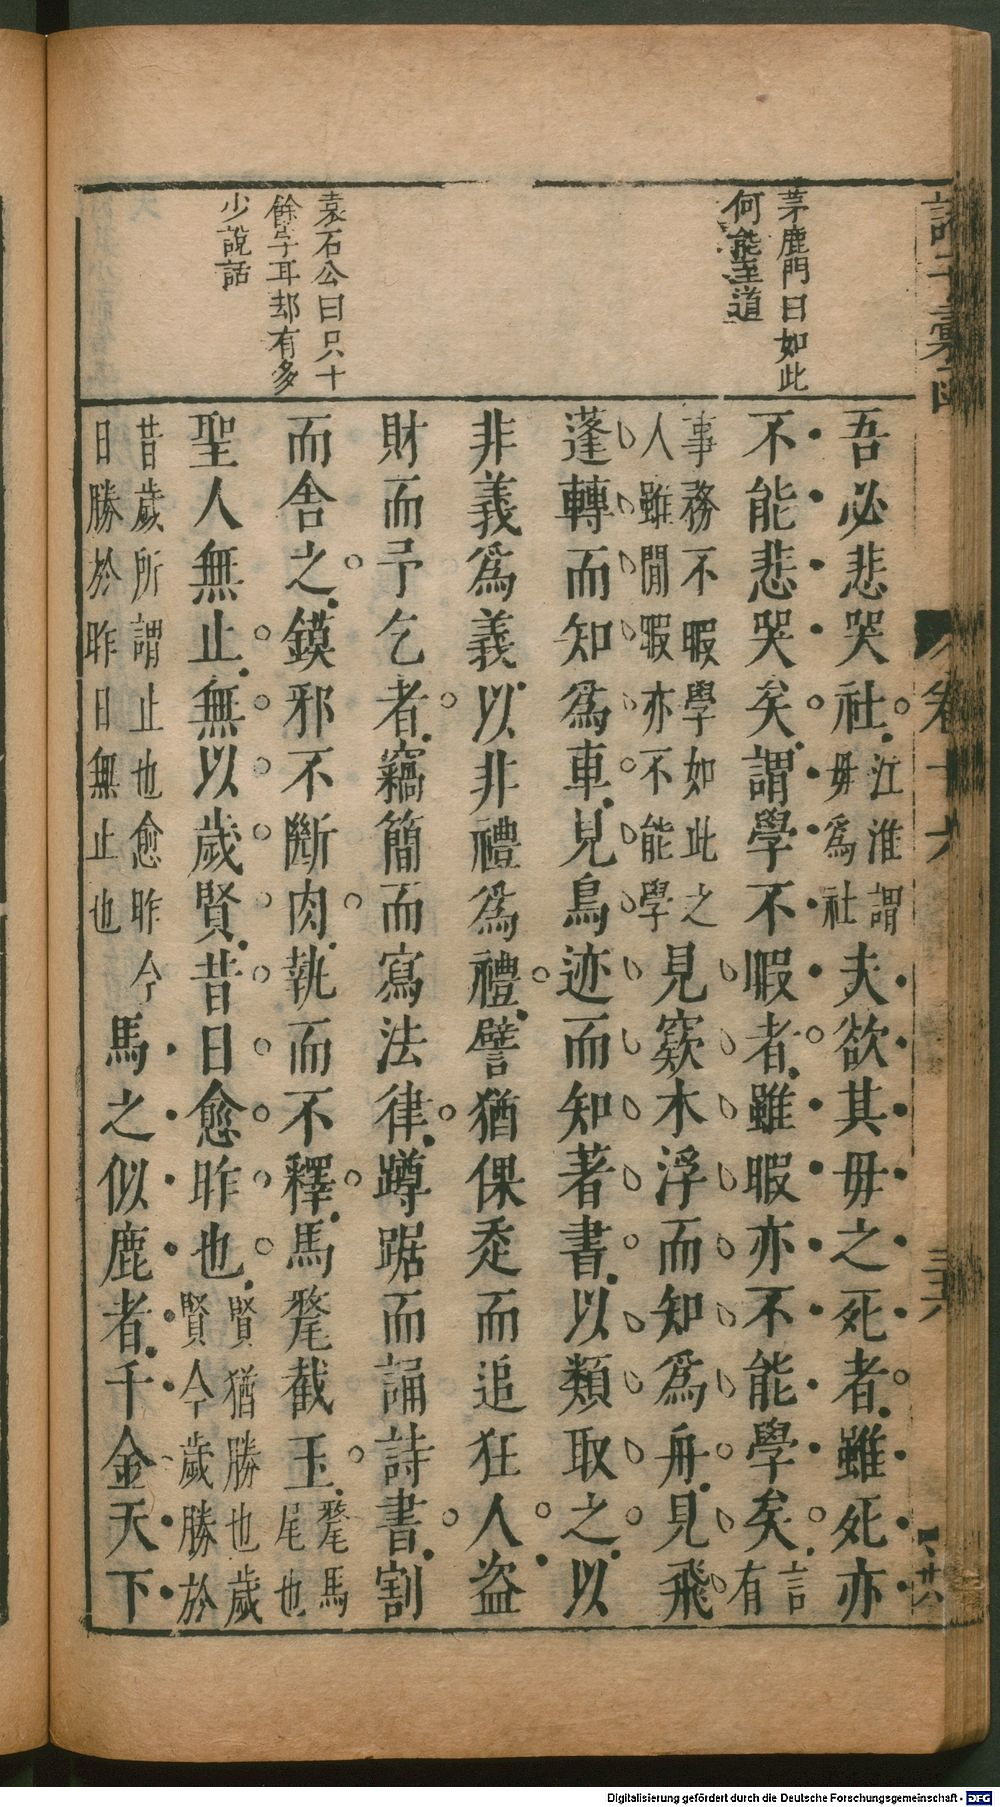 茅鹿門曰如此
何能至道
袁石公曰只十
餘字耳却有多
少說話
吾必悲哭社江淮謂毋爲社夫欲其毋之死者雖死亦
不能悲哭矣謂學不暇者雖暇亦不能學矣言有
事務不暇學如此之人雖閒暇亦不能學見窾木浮而知爲舟見飛
蓬轉而知爲車見鳥迹而知著書以類取之以
非義爲義以非禮爲禮譬猶倮走而追狂人盜
財而予乞者竊簡而寫法律蹲踞而誦詩書割
而舍之鏌邪不斷肉執而不釋馬氂截玉氂馬尾也
聖人無止無以歲賢昔日愈昨也賢猶勝也歲賢今歲勝於
昔歲所謂止也愈昨今日勝於昨日無止也馬之似鹿者千金天下
諸子彙函
卷十六
廿八
Digitalisierung gefördert durch die Deutsche Forschungsgemeinschaft - DFG